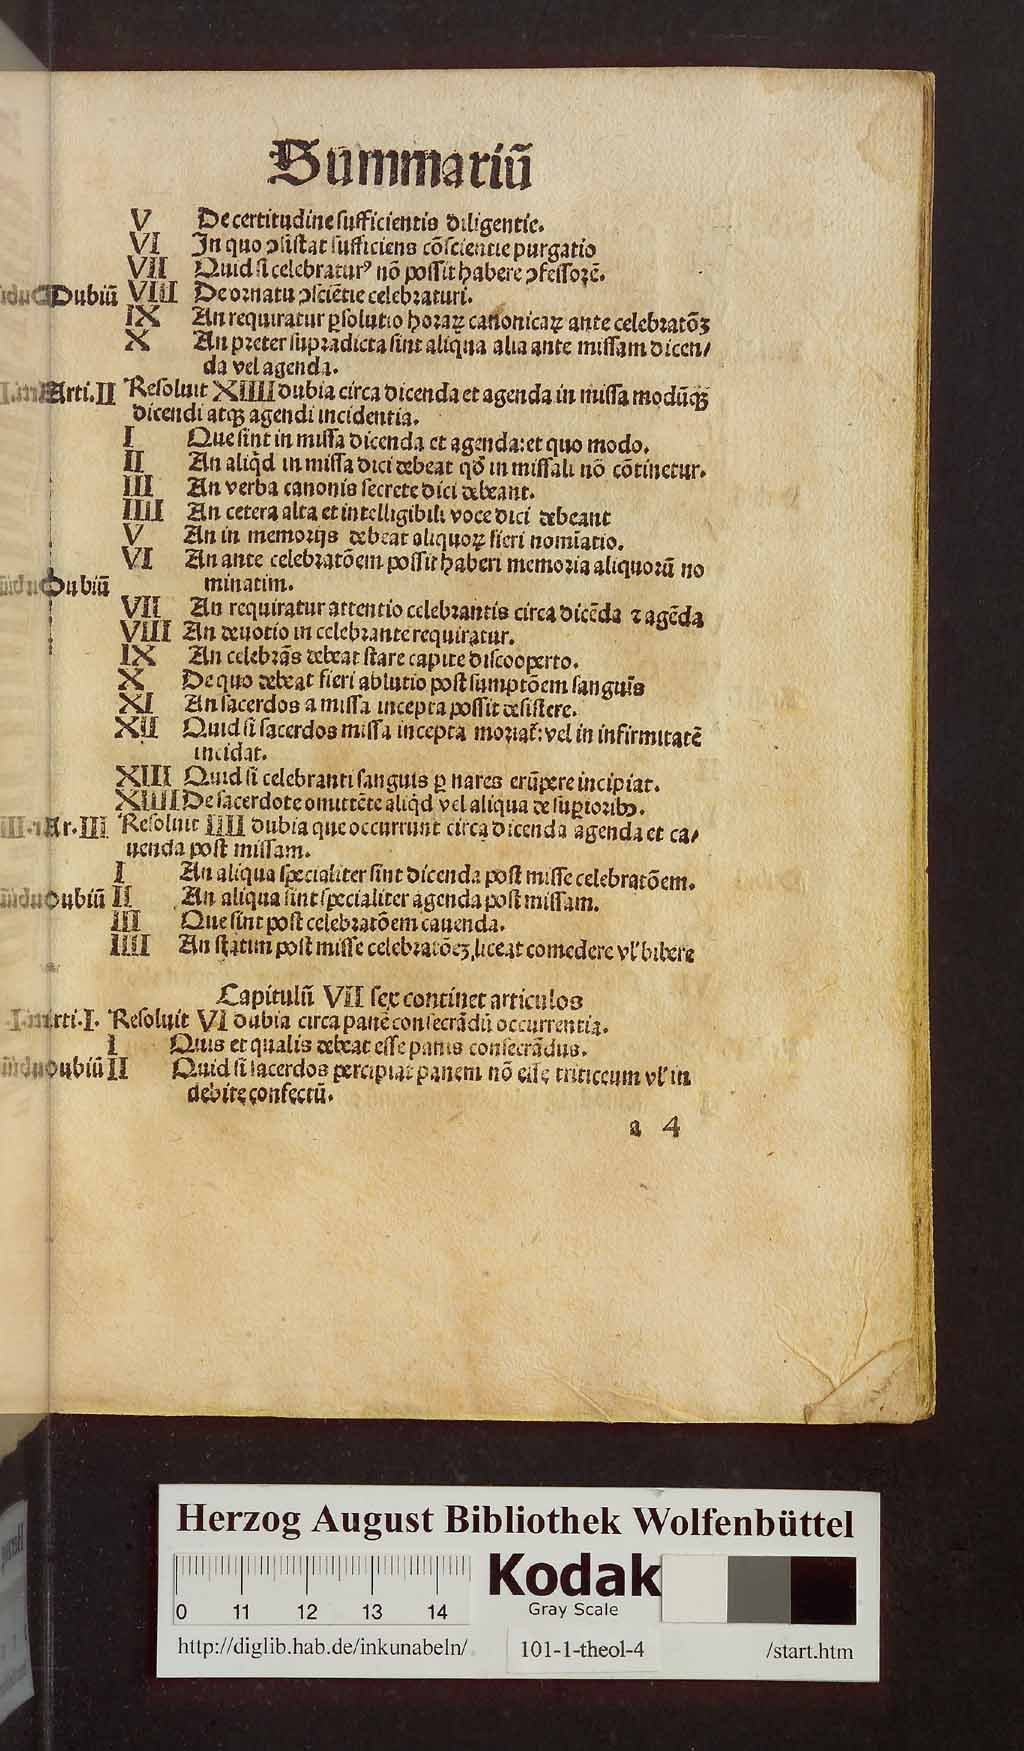 Summariū
V De certitudine sufficientis diligentie.
VI In quo ↄsistat sufficiens cōscientie purgatio
VII Quid si celebraturꝰ nō possit habere ↄfessorē.
Dubiū VIII De ornatu ↄsciētie celebraturi.
IX An requiratur ꝑsolutio horaꝝ canonicaꝝ ante celebratōꝫ
X An preter supradicta sint aliqua alia ante missam dicen/
da vel agenda.
Arti.II Resoluit XIIII dubia circa dicenda et agenda in missa modūqꝫ
dicendi atqꝫ agendi incidentia.
I Que sint in missa dicenda et agenda: et quo modo.
II An aliqd̓ in missa dici debeat qd̓ in missali nō cōtinetur.
III An verba canonis secrete dici debeant.
IIII An cetera alta et intelligibili voce dici debeant
V An in memorijs debeat aliquoꝝ fieri nomīatio.
VI An ante celebratōem possit haberi memoria aliquorū no
Dubiū minatim.
VII An requiratur attentio celebrantis circa dicēda ⁊ agēda
VIII An deuotio in celebrante requiratur.
IX An celebrās debeat stare capite discooperto.
X De quo debeat fieri ablutio post sumptōem sanguīs
XI An sacerdos a missa incepta possit desistere.
XII Quid si sacerdos missa incepta moriat̄: vel in infirmitatē
incidat.
XIII Quid si celebranti sanguis ꝑ nares erūpere incipiat.
XIIII De sacerdote omittēte aliqd̓ vel aliqua de suꝑioribꝫ.
Ar.III Resoluit IIII dubia que occurrunt circa dicenda agenda et ca/
uenda post missam.
I An aliqua specialiter sint dicenda post misse celebratōem.
Dubiū II An aliqua sint specialiter agenda post missam.
III Que sint post celebratōem cauenda.
IIII An statim post misse celebratōeꝫ, liceat comedere vl' bibere
Capitulū VII sex continet articulos
Arti.I. Resoluit VI dubia circa panē consecrādū occurrentia.
I Quis et qualis debeat esse panis consecrādus.
Dubiū II Quid si sacerdos percipiat panem nō esse triticeum vl' in
debite confectū.
a 4
Herzog August Bibliothek Wolfenbüttel
Kodak
Gray Scale
0 11 12 13 14
http://diglib.hab.de/inkunabeln/ 101-1-theol-4 /start.htm